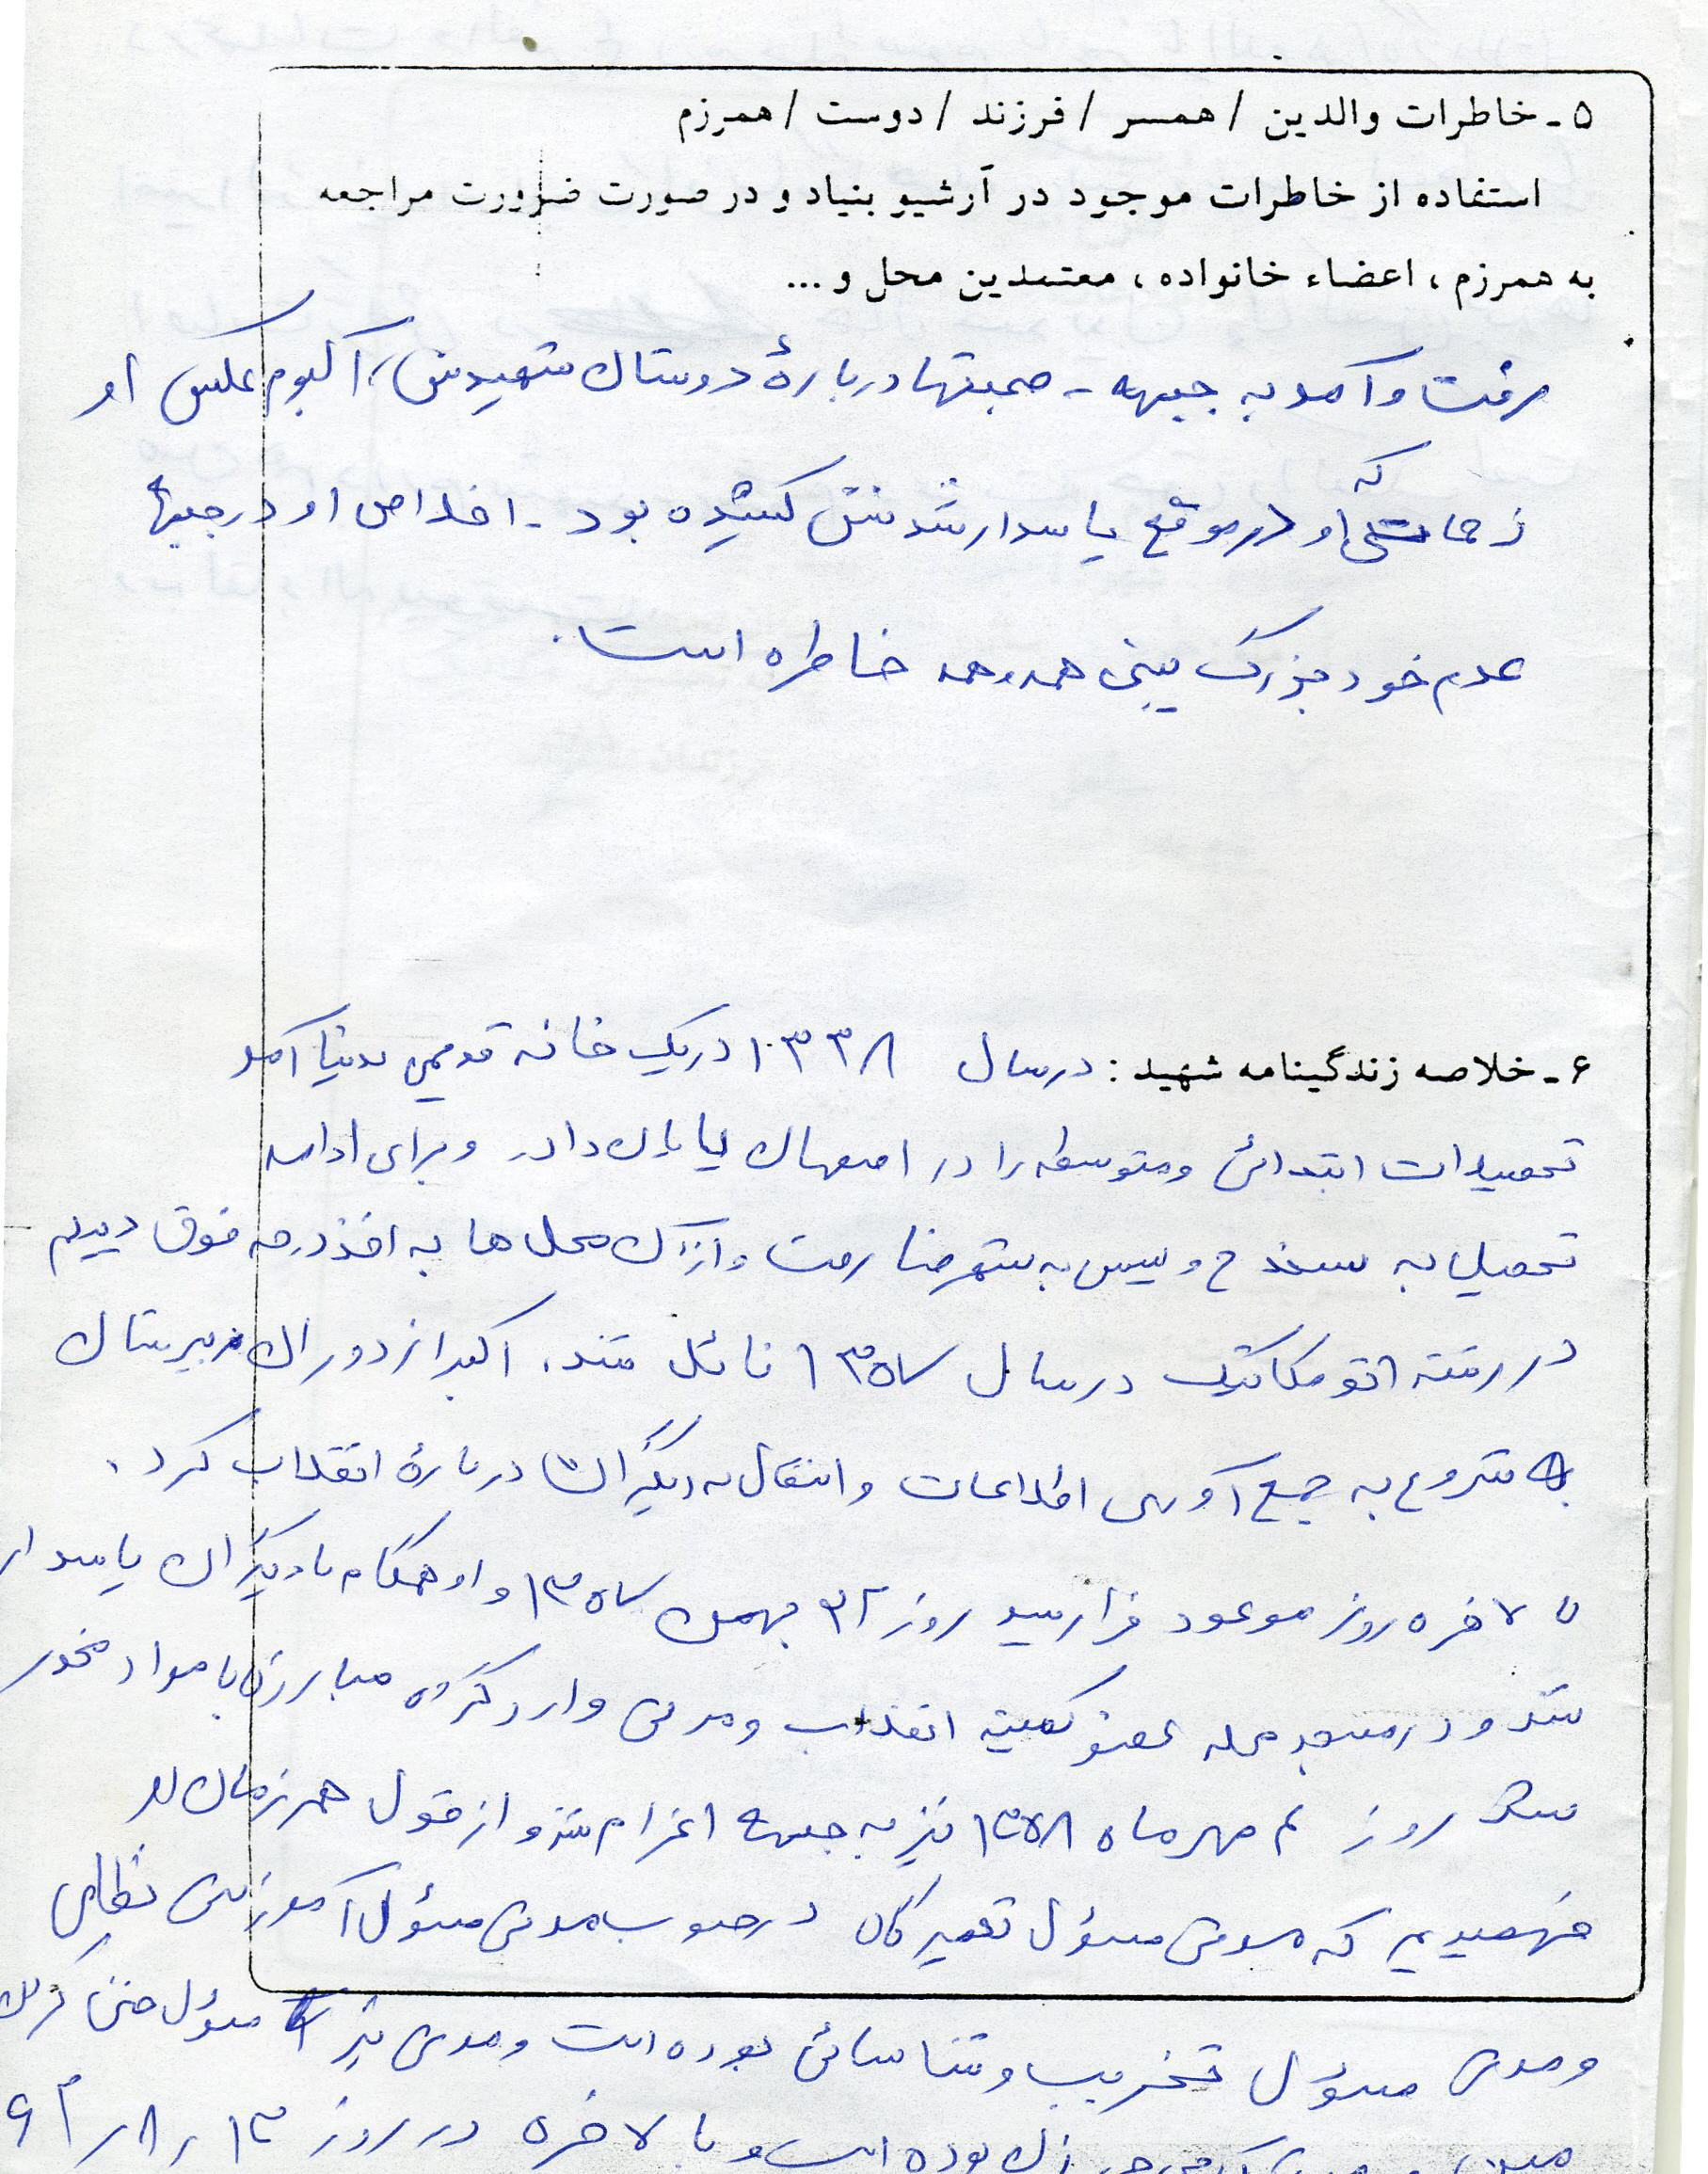 ۵ ـ خاطرات والدین / همسر / فرزند / دوست / همرزم
استفاده از خاطرات موجود در آرشیو بنیاد و در صورت ضرورت مراجعه
به همرزم ، اعضاء خانواده ، معتمدین محل و ...
رفت و آمد به جبهه - صحبتها دربارهٔ دوستان شهیدش، آلبوم عکس او
زحماتی که او در موقع پاسدار شدنش کشیده بود - اخلاص او در جبهه‌ها
عدم خود بزرگ بینی همه و همه خاطره است.
۶ ـ خلاصه زندگینامه شهید : در سال ۱۳۳۸ در یک خانه قدیمی بدنیا آمد
تحصیلات ابتدائی و متوسطه را در اصفهان پایان داد. و برای ادامه
تحصیل به سنندج و سپس به شهرضا رفت و از آن محل ها به اخذ درجه فوق دیپلم
در رشته اتومکانیک در سال ۱۳۵۷ نائل شد. اکبر از دوران دبیرستان
شروع به جمع آوری اطلاعات و انتقال به دیگران دربارهٔ انقلاب کرد.
بالاخره روز موعود فرا رسید روز ۲۲ بهمن ۱۳۵۷ و او همگام با دیگران پاسدار
شد و در مسجد محله عضو کمیته انقلاب و مدتی وارد گروه مبارزه با مواد مخدر
شد روز ۲ مهر ماه ۱۳۵۸ نیز به جبهه اعزام شد و از قول همرزمان او
فهمیدیم که مدتی مسؤل تعمیرگاه در جنوب مدتی مسؤل آموزش نظامی
و مدتی مسؤل تخریب و شناسائی بوده است و مدتی نیز مسؤل خنثی کردن
مین بوده است و بالاخره در روز ۱۳ ر ۸ ر ۶۲